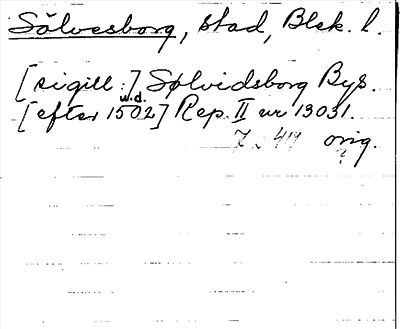 Sölvesborg, stad, Blek. l.
[sigill:] Sølvidsborg Bys.
u.d.
[efter 1502] Rep. II nr 13031.
7. 419 orig.
?